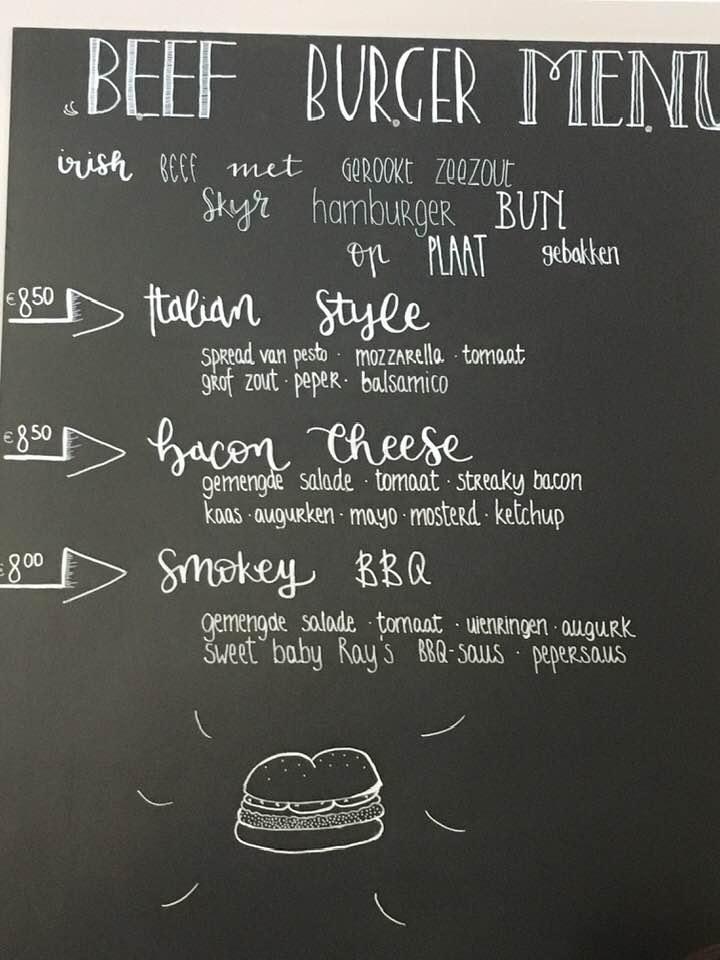 BEEF BURGER MENU
irish BEEF met GEROOKT ZEEZOUT
Skyr hamburger BUN
op PLAAT gebakken
€850 Italian Style
SPREAD van pesto · MOZZARElla · tomaat
GROF ZOUT · PEPER · balsamico
€8.50 bacon Cheese
gemengde salade · tomaat · STREAKY bacon
kaas · augurken · mayo · mosterd · ketchup
€8.00 Smokey BBQ
gemengde salade · tomaat · uienringen · augurk
sweet baby Ray's BBQ-saus · pepersaus